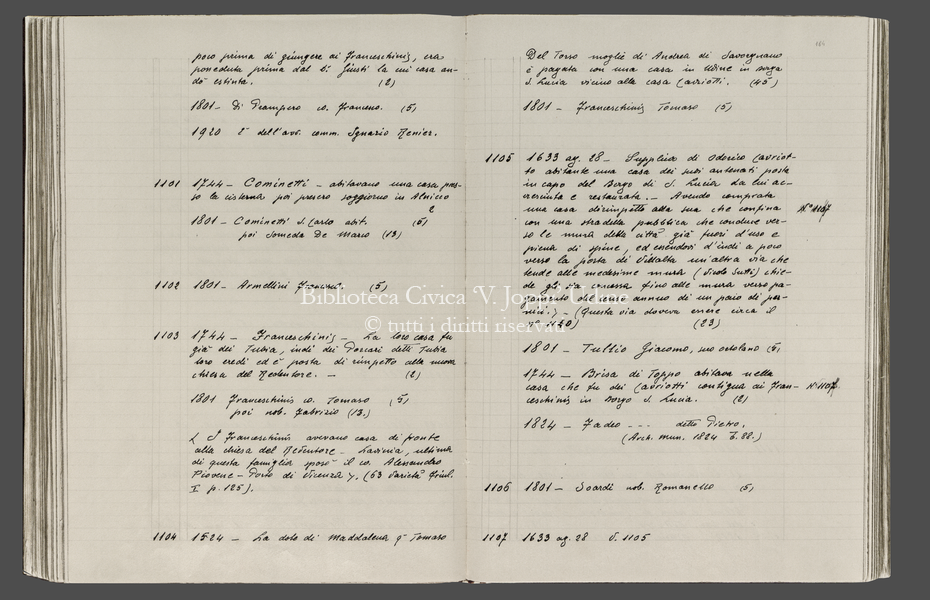 poco prima di giungere ai Franceschinis, era
posseduta prima dal D.r Giusti la cui casa an-
dò estinta. (2)
1801 - Di Prampero co. Francesco. (5)
1920 È dell'avv. comm. Ignazio Renier.
1101 1744 - Cominetti - abitavano una casa pres-
so la cisterna poi presero soggiorno in Alnicco
2
1801 - Cominetti S. Carlo abit. (5)
poi Someda De Marco (13)
1102 1801 - Armellini Francesco (5)
1103 1744 - Franceschinis - La loro casa fu
già dei Tubia, indi dei Porcari detti Tubia
loro eredi ed è posta di rimpetto alla nuova
chiesa del Redentore. - (2)
1801 Franceschinis co. Tomaso (5)
poi nob. Fabrizio (13.)
I Franceschinis avevano casa di fronte
alla chiesa del Redentore - Lavinia, ultima
di questa famiglia sposò il co. Alessandro
Piovene - Porto di Vicenza. (63 Varietà friul.
I p. 125).
1104 1524 - La dote di Maddalena q.m Tomaso
Del Torso moglie di Andrea di Savorgnano
è pagata con una casa in Udine in borgo
S. Lucia vicino alla casa Cavriotti. (45)
1801 - Franceschinis Tomaso (5)
1105 1633 ag. 28 - Supplica di Odorico Cavriot-
to abitante una casa dei suoi antenati posta
in capo del Borgo di S. Lucia da lui ac-
cresciuta e restaurata. - Avendo comprata
una casa dirimpetto alla sua che confina N.° 1107
con una stradella pubblica che conduce ver-
so le mura della città già fuori d'uso e
piena di spine, ed essendovi d'indi a poco
verso la porta di Villalta un'altra via che
tende alle medesime mura (Vicolo Sutti) chie-
de gli sia concessa fino alle mura verso pa-
gamento del censo annuo di un paio di per-
nici. - (Questa via doveva essere circa il
n.° 1140) (23)
1801 - Tullio Giacomo, suo ortolano (5)
1744 - Brisa di Toppo abitava nella
casa che fu dei Cavriotti contigua ai Fran- N.° 1107
ceschinis in Borgo S. Lucia. (2)
1824 - Fadeo --- detto Pietro.
(Arch. mun. 1824 b. 88.)
1106 1801 - Soardi nob. Romanello (5)
1107 1633 ag. 28 V. 1105
Biblioteca Civica 'V. Joppi' Udine
© tutti i diritti riservati